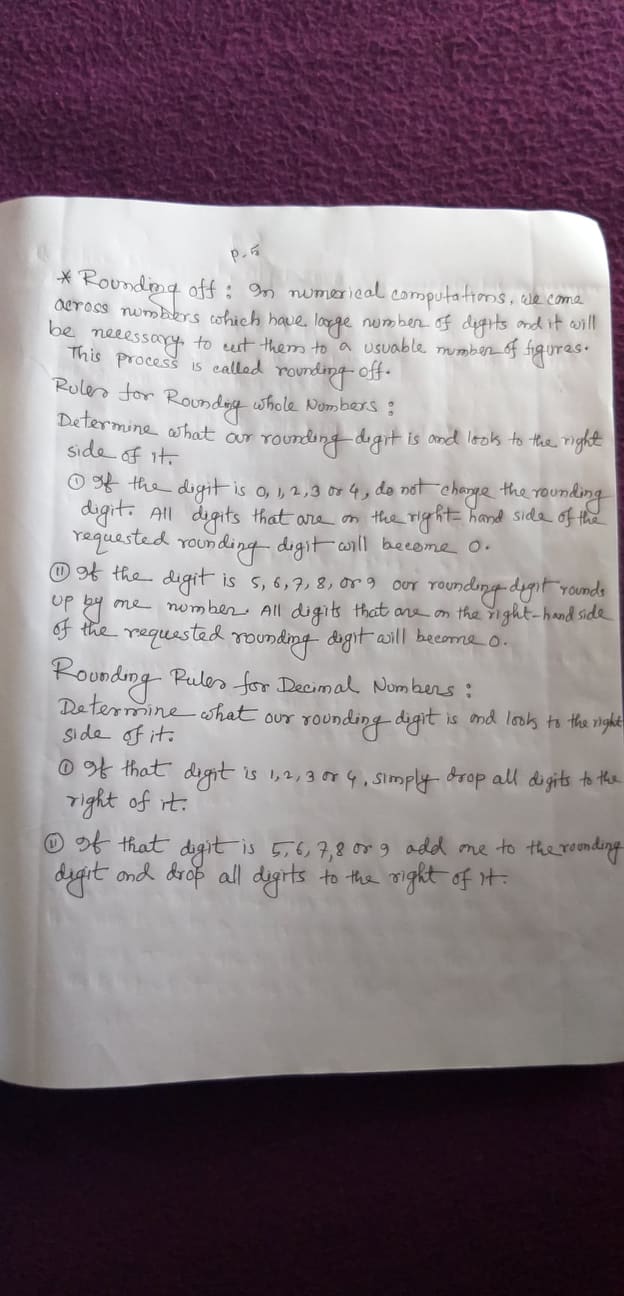 P.5
* Rounding off : In numerical computations, we come
across numbers which have large number of digits and it will
be necessary to cut them to a usuable number of figures.
This process is called rounding off.
Rules for Rounding whole Numbers :
Determine what our rounding digit is and look to the right
side of it.
(i) If the digit is 0, 1, 2, 3 or 4, do not change the rounding
digit. All digits that are on the right-hand side of the
requested rounding digit will become 0.
(ii) If the digit is 5, 6, 7, 8, or 9 our rounding digit rounds
up by one number. All digits that are on the right-hand side
of the requested rounding digit will become 0.
Rounding Rules for Decimal Numbers :
Determine what our rounding digit is and look to the right
side of it.
(i) If that digit is 1, 2, 3 or 4, simply drop all digits to the
right of it.
(ii) If that digit is 5, 6, 7, 8 or 9 add one to the rounding
digit and drop all digits to the right of it.